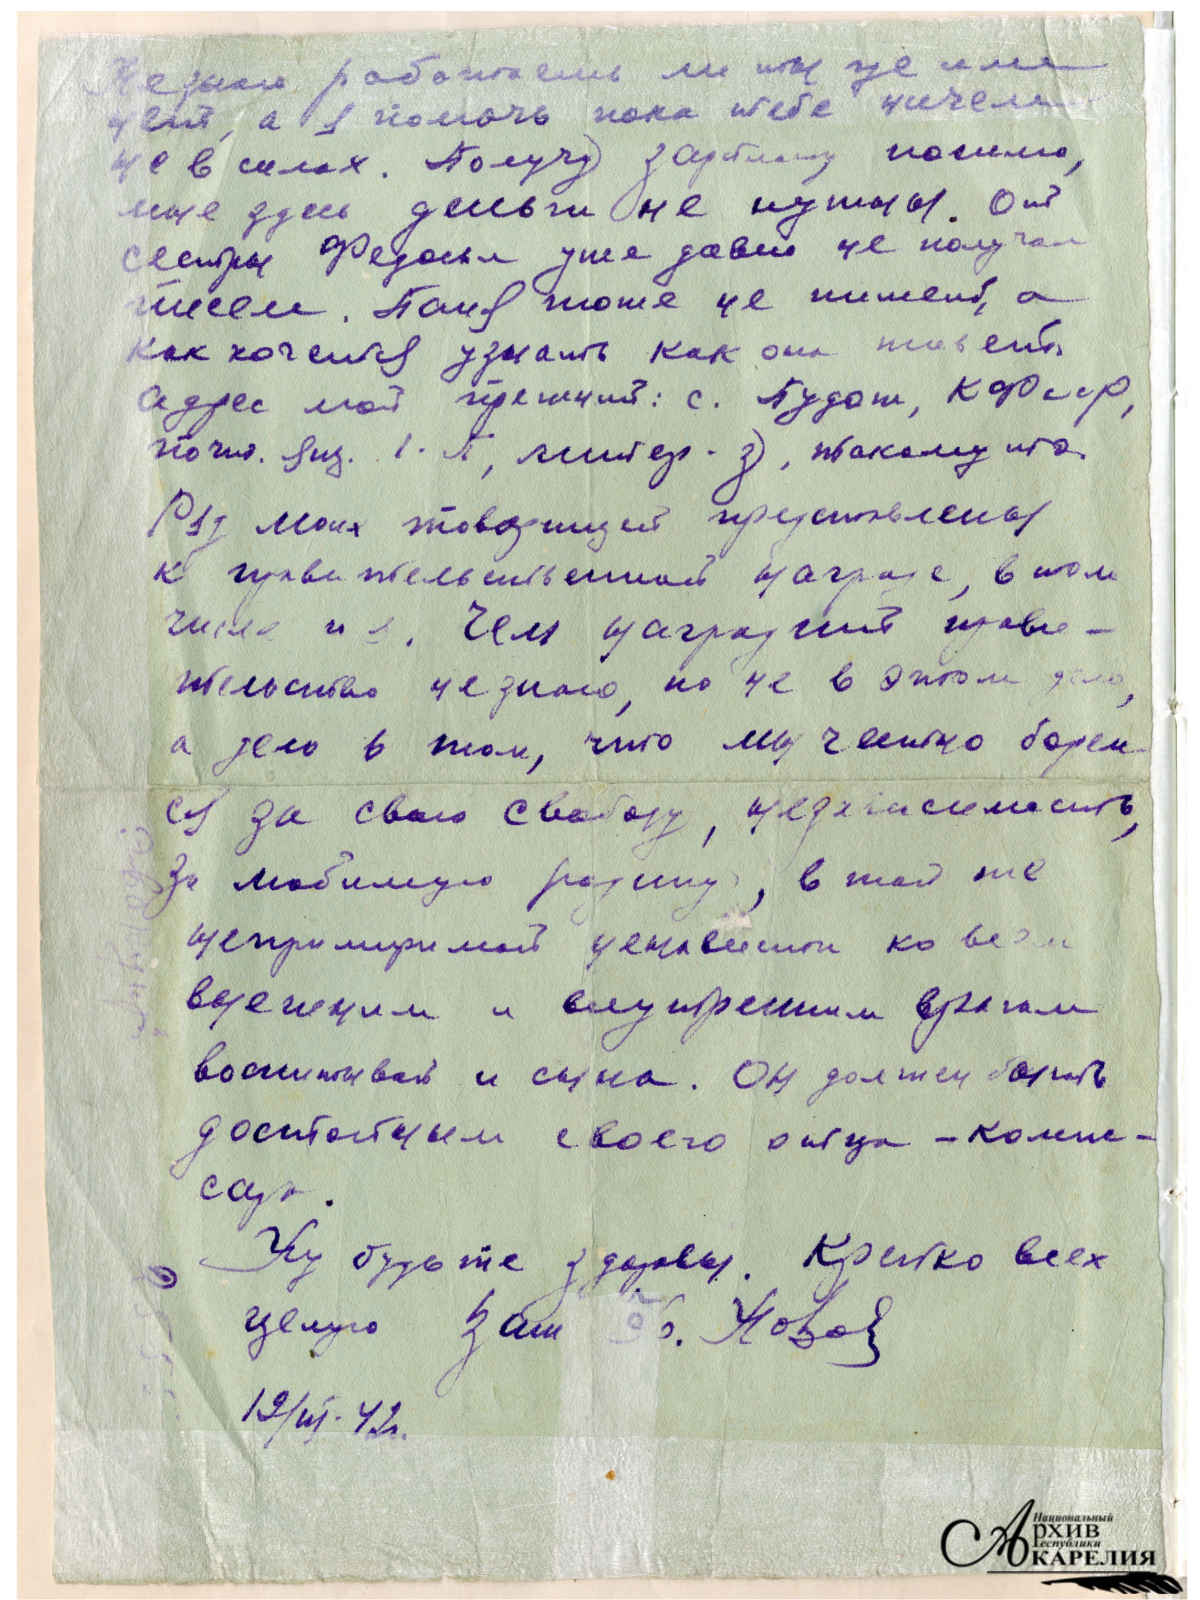 Не знаю работаешь ли ты уже или
нет, а я помочь пока тебе ничем
не в силах. Получу зарплату пошлю,
мне здесь деньги не нужны. От
сестры Федосьи уже давно не получал
писем. Паня тоже не пишет, а
как хочется узнать как она живет.
Адрес мой прежний: с. Пудож, КФССР,
почт. ящ. 1-П, литер-З, такому то.
Ряд моих товарищей представлены
к правительственной награде, в том
числе и я. Чем наградит прави-
тельство не знаю, но не в этом дело,
а дело в том, что мы честно борем
ся за свою свободу, независимость,
за любимую родину, в той же
непримиримой ненависти ко всем
внешним и внутренним врагам
воспитывай и сына. Он должен быть
достойным своего отца – комис-
сара.
Ну будьте здоровы. Крепко всех
целую Ваш
12/III-42г.
Национальный
Архив
Республики
Карелия